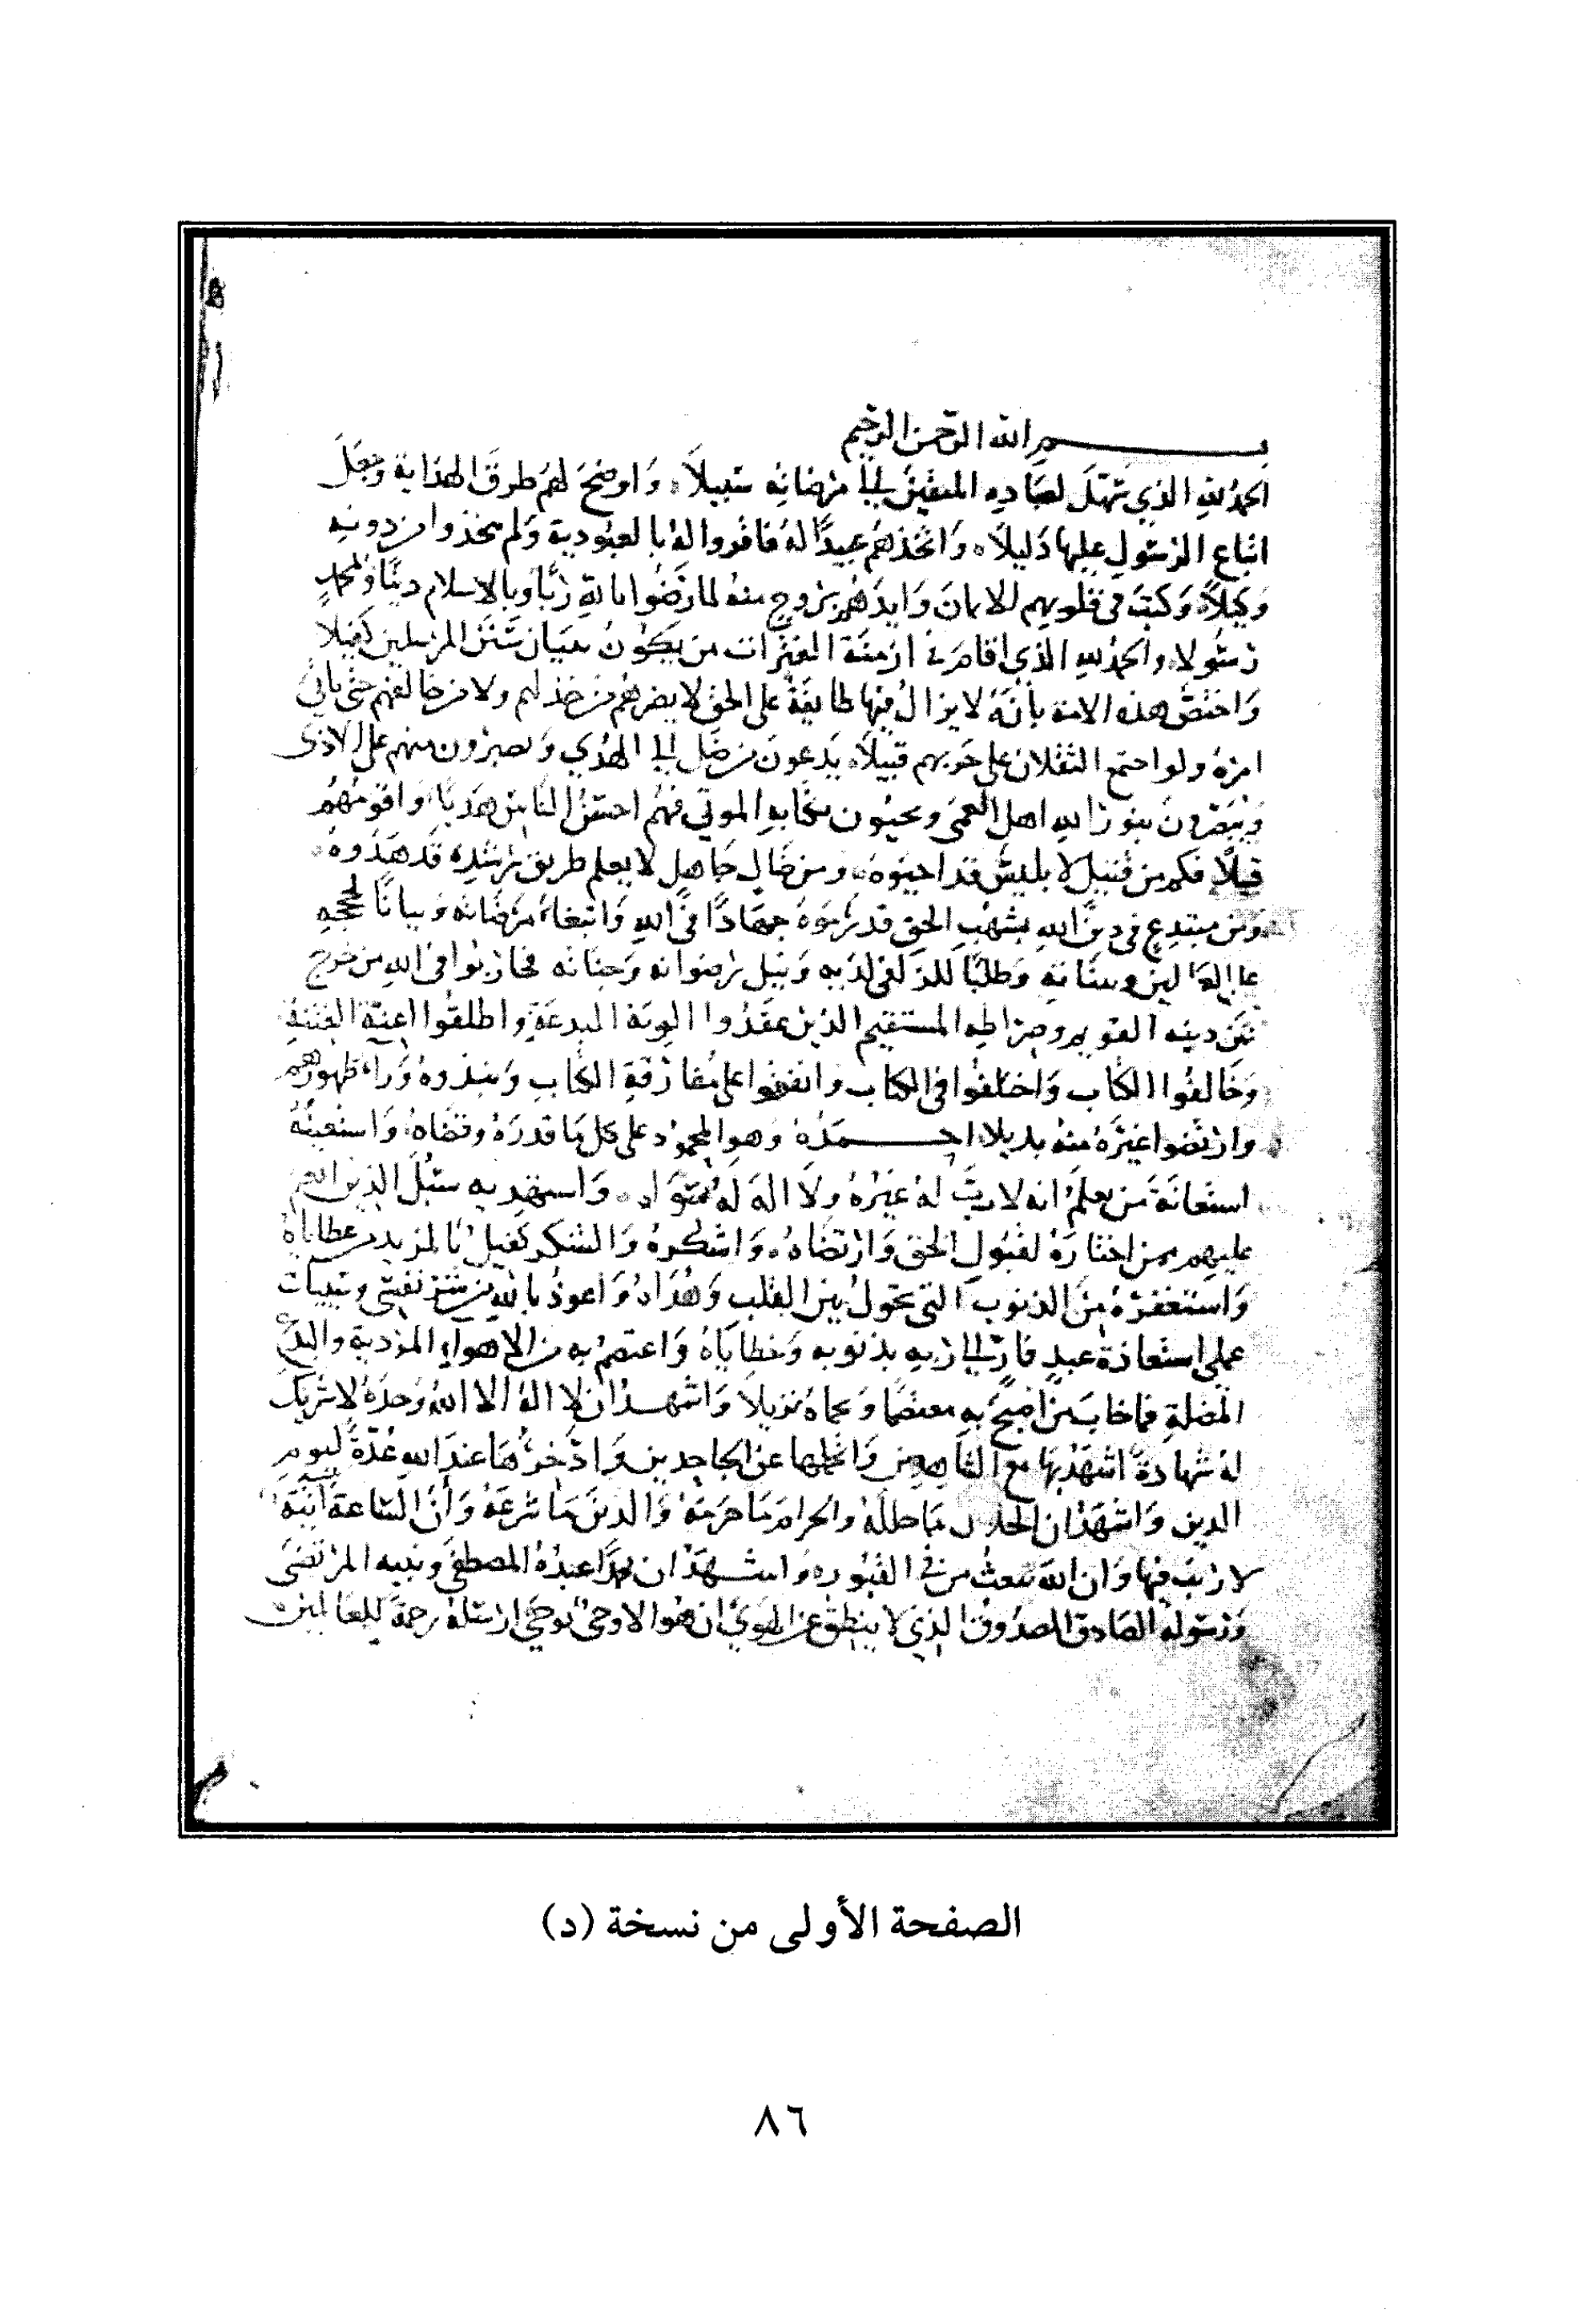 بسم الله الرحمن الرحيم
الحمد لله الذي سهل لعباده المتقين إلى مرضاته سبيلا، وَاوضحَ لهم طرقَ الهداية وجعَلَ
اتباع الرسول عليها دَليلاً، وَاتخذهم عبيدًا له فاقروا له بالعبودية وَلم يتخذوا من دونه
وَكيلاً، وَكتبَ في قلوبهم الايمانَ وَايدَهم بروحٍ منهُ لما رَضُوا بالله رَبًّا وبالاسلام دينًا وبمحمدٍ
رَسُولا، والحمد لله الذي اقامَ في ازمنة الفترات من يكونُ ببيان سُنَن المرسلين كفيلاً
وَاختصَّ هذه الامة بأنَّهُ لا يزالُ فيها طايفةٌ على الحق لا يضرهُم من خذلهم ولا من خالفهم حتى يأتي
امرُهُ ولو اجتمع الثقلان على حَربهم قبيلاً، يَدعونَ من ضَل إلى الهُدي وَيصبرُون منهم على الاذى
وَيُبَصِّرونَ بنورِ الله اهل العَمى ويحيُون بكتابهِ الموتي فهُم احسَنُ الناسِ هَديًا، وَاقوَمُهُم
قيلاً، فكم من قتيلٍ لابليسَ قد احيَوهُ، ومن ضَالٍ جَاهلٍ لا يعلم طريق رُشدِه قَد هَدَوهُ،
وَمن مبتدِعٍ في دين الله بشهُبِ الحقِ قد رَمَوهُ جهَادًا في الله وَابتغاءَ مرضاته وَبيانًا لحججِهِ
على العَالمين وبيناتهِ وَطلبًا للزلفى لديه وَنيل رضوانه وَجناته فحارَبُوا في اللهِ من خرج
عَن دينه القويم وصراطه المستقيم الذين عقَدُوا الويَة البدعَةِ واطلقُوا اعنةَ الفتنةِ
وَخَالفُوا الكتاب وَاختلفُوا في الكتاب واتفقوا على مُفارَقةِ الكتاب وَنبذوه وَراءَ ظهورهم
وارتضوا غيرَهُ منهُ بديلا، احمَدُهُ وَهو المحمُود على كل مَا قدرَهُ وقضَاهُ، وَاستعينُهُ
استعانَةَ مَن يعلمُ انه لا ربَّ لهُ غيرُهُ ولَا الهَ لَهُ سِوَاه، وَاستهدِيه سُبُلَ الذين انعم
عليهم ممن اختارَهُ لقبُولِ الحق وَارتضَاهُ، وَاشكرهُ وَالشكر كفيلٌ بالمزيد من عطاياهُ
وَاستغفرُهُ مِنَ الذنوب التي تحُولُ بين القلب وَهُدَاهُ وَاعوذُ بالله مِن شر نفسي وسيآت
عملي استعاذةَ عبدٍ فارٍّ إلى ربهِ بذنوبه وَخطايَاهُ وَاعتصمُ به من الاهواءِ المرديةِ والبدع
المُضلةِ فما خابَ من اصبَحَ به معتصمًا وَبحماهُ نزيلاً وَاشهـدُ ان لا الهَ الا اللهُ وَحدَهُ لا شريك
لهُ شهادةً اشهَدُ بهَا مع الشاهدين وَاتحملها عن الجَاحِدين وَادَّخرُهَا عندَ اللهِ عُدَّةً ليوم
الدين وَاشهَدُ ان الحلال مَا حلله والحرامَ مَا حرمَهُ وَالدينَ مَا شرعَهُ وَأنَّ السَّاعَةَ آتيةٌ
لا رَيبَ فيها وَان الله يَبعثُ من في القبُور، وَاشـهَدُ ان محمدًا عبدُهُ المصطفى ونبيه المرتضَى
وَرَسُوله الصَادِق المصدُوق الذي لا ينطقُ عن الهوَى ان هُوَ الا وَحيٌ يُوحَى ارسَلهُ رحمةً للعَالمين
الصفحة الأولى من نسخة (د)
٨٦